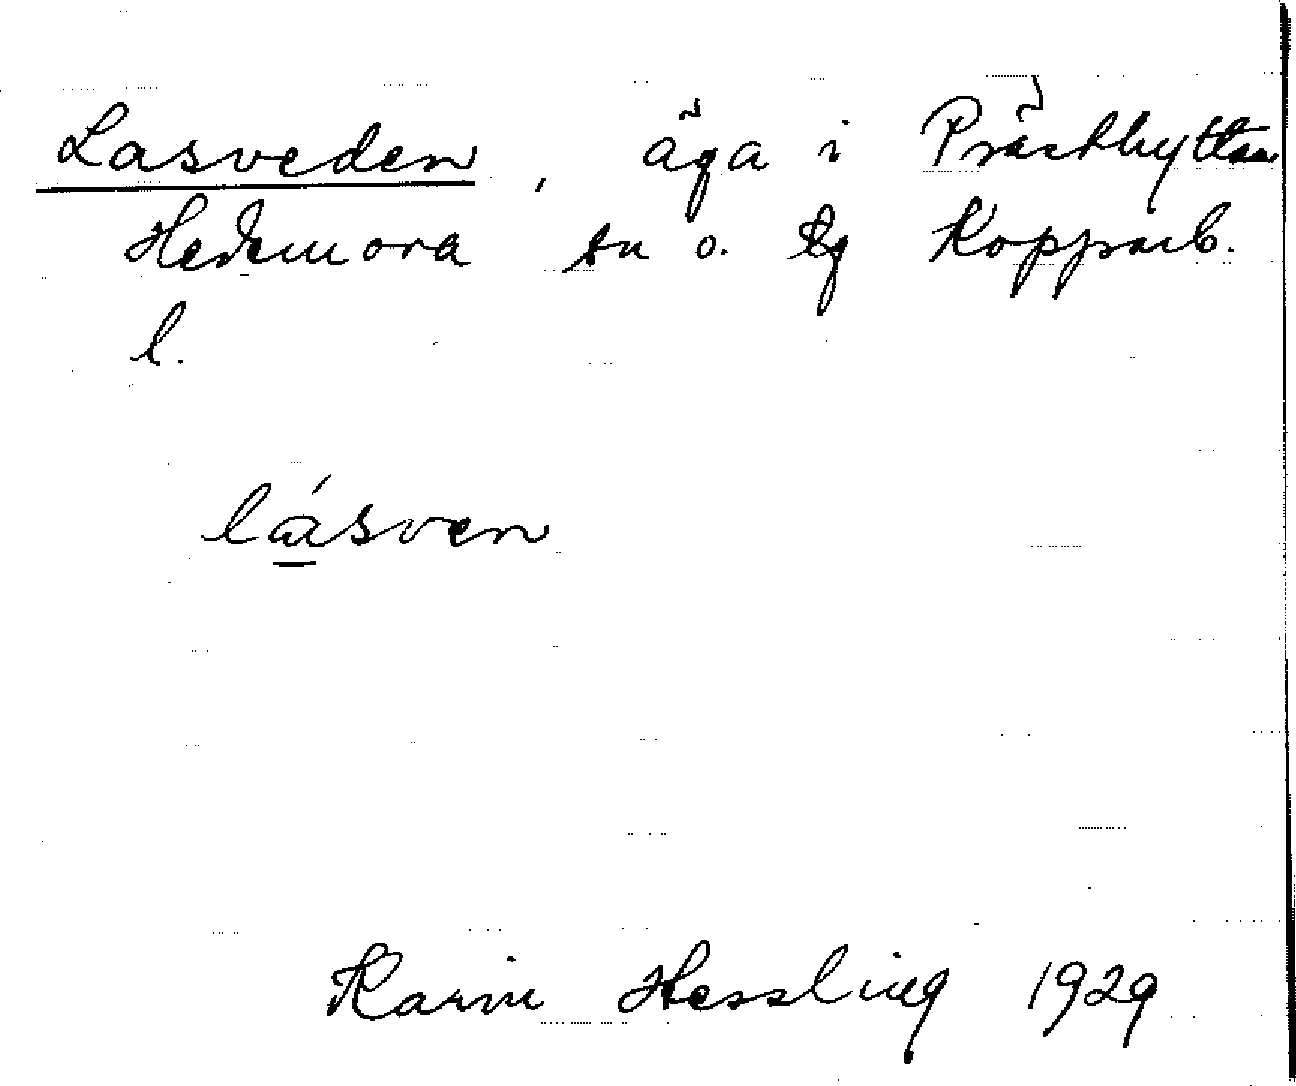 Lasveden, äga i Prästhyttan
Hedemora sn o. lg Kopparb.
l.
lásven
Karin Hessling 1929